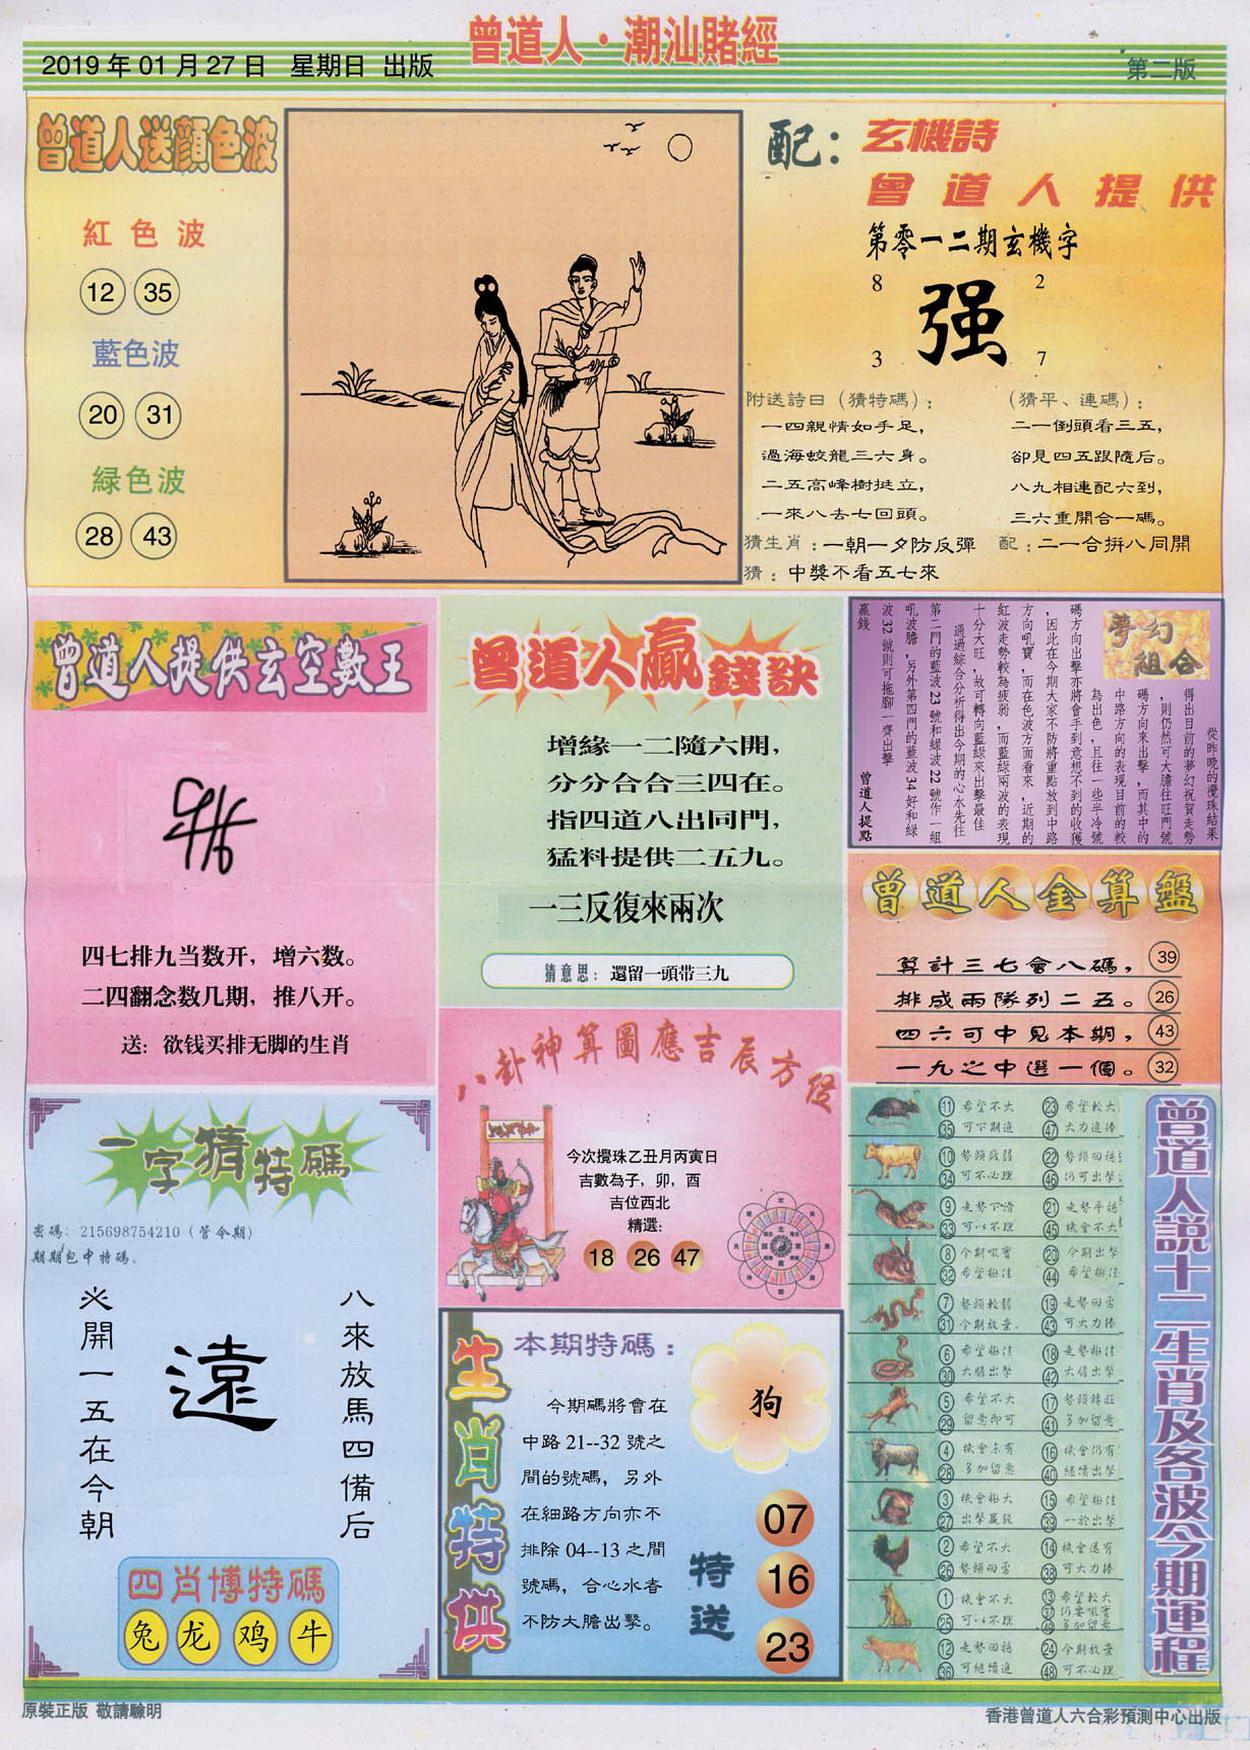 曾道人·潮汕賭經
2019 年 01 月 27 日 星期日 出版
第二版
曾道人送顏色波
紅色波
12 35
藍色波
20 31
緑色波
28 43
配：玄機詩
曾道人提供
第零一二期玄機字
8 2
强
3 7
附送詩曰（猜特碼）：
一四親情如手足，
過海蛟龍三六身。
二五高峰樹挺立，
一來八去七回頭。
（猜平、連碼）：
二一倒頭看三五，
卻見四五跟隨后。
八九相連配六到，
三六重開合一碼。
猜生肖：一朝一夕防反彈 配：二一合拼八同開
猜：中獎不看五七來
曾道人提供玄空數王
四七排九当数开，增六数。
二四翻念数几期，推八开。
送：欲钱买排无脚的生肖
曾道人贏錢訣
增緣一二隨六開，
分分合合三四在。
指四道八出同門，
猛料提供二五九。
一三反復來兩次
猜意思：還留一頭带三九
夢幻
組合
從昨晚的攪珠結果
得出目前的夢幻祝賀走勢
，則仍然可大膽往旺門號
碼方向來出擊，而其中的
中路方向的表現目前的較
為出色，且往一些半冷號
碼方向出擊亦將會手到意想不到的收獲
，因此在今期大家不防將重點放到中路
方向吼寶，而在色波方面看來，近期的
紅波走勢較為疲弱，而藍綠兩波的表現
十分大旺，故可轉向藍綠來出擊最佳
通過綜合分析得出今期的心水先往
第二門的藍波 23 號和緑波 22 號作一組
吼波膽，另外第四門的藍波 34 好和緑
波 32 號則可拖腳一齊出擊
贏錢
曾道人提點
曾道人金算盤
算計三七會八碼， 39
排成兩隊列二五。 26
四六可中見本期， 43
一九之中選一個。 32
八卦神算圖應吉辰方位
今次攪珠乙丑月丙寅日
吉數為子，卯，酉
吉位西北
精選：
18 26 47
一字猜特碼
密碼：215698754210（管令期）
期期包中特碼。
八來放馬四備后
遠
※開一五在今朝
四肖博特碼
兔 龙 鸡 牛
生肖特供
本期特碼：
狗
今期碼將會在
中路 21--32 號之
間的號碼，另外
在細路方向亦不
排除 04--13 之間
號碼，合心水者
不防大膽出擊。
特送
07
16
23
曾道人説十二生肖及各波今期運程
11 希望不大 23 希望較大
35 可下期追 47 大力追捧
10 勢頭疲弱 22 勢頭回穩
34 可不心理 46 仍可出擊
9 走勢下滑 21 走勢平穩
33 可以不理 45 機會不大
8 今期吼實 20 今期出擊
32 希望極佳 44 希望極佳
7 勢頭較弱 19 走勢回雲
31 今期放棄 43 可大力捧
6 希望極佳 18 走勢極佳
30 大膽出擊 42 大膽出擊
5 希望不大 17 勢頭轉旺
29 留意即可 41 多加留意
4 機會未有 16 機會仍有
28 多加留意 40 繼續出擊
3 機會極大 15 希望極佳
27 出擊贏錢 39 一於出擊
2 希望不大 14 機會還有
26 勢頭回雲 38 可大力捧
1 機會不大 13 希望較大
25 可以不理 37 仍要吼實
49 多加留意
12 走勢回穩 24 今期放棄
36 可繼續追 48 可不心理
原裝正版 敬請驗明
香港曾道人六合彩預測中心出版